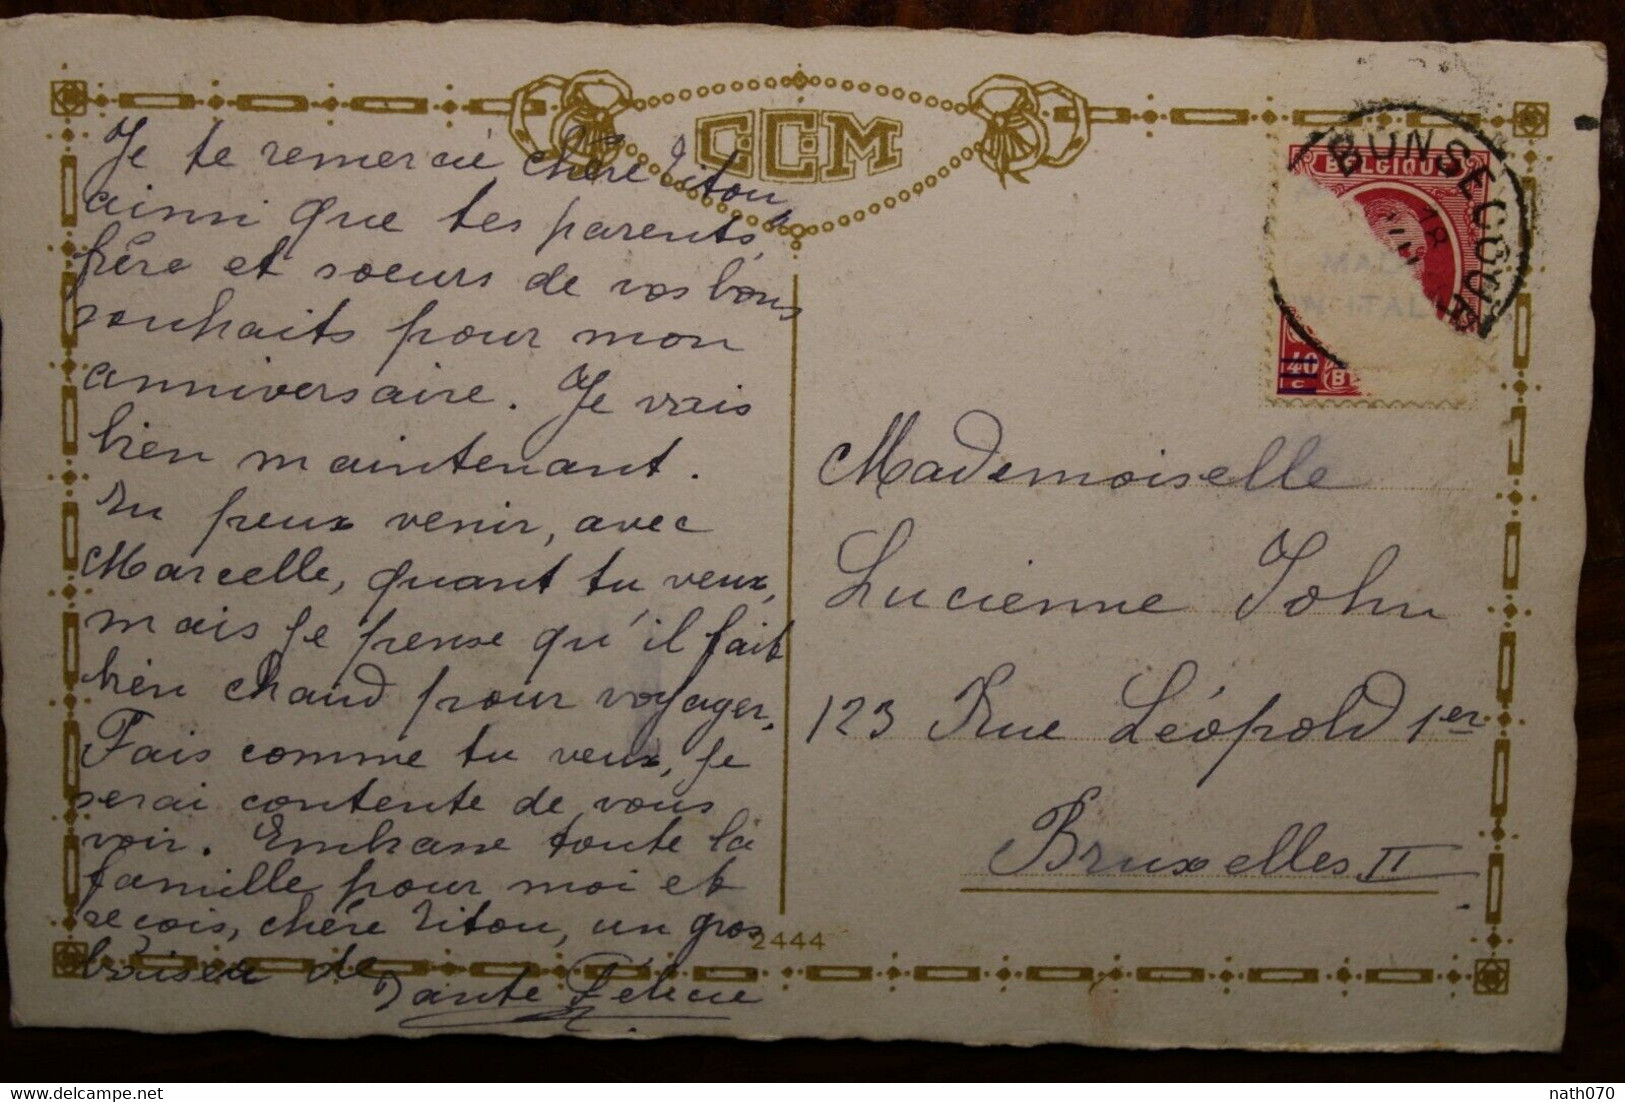 CCM
Je te remercie, chère Titou,
ainsi que tes parents,
frère et soeurs de vos bons
souhaits pour mon
anniversaire. Je vais
bien maintenant.
Tu peux venir, avec
Marcelle, quant tu veux,
mais je pense qu'il fait
bien chaud pour voyager,
Fais comme tu veux, je
serai contente de vous
voir. Embrasse toute la
famille pour moi et
reçois, chère Titou, un gros
baiser de
Tante Félicie
2444
BELGIQUE
40
c
MAD
IN ITAL
18
Mademoiselle
Lucienne John
123 Rue Léopold 1er
Bruxelles II
nath070